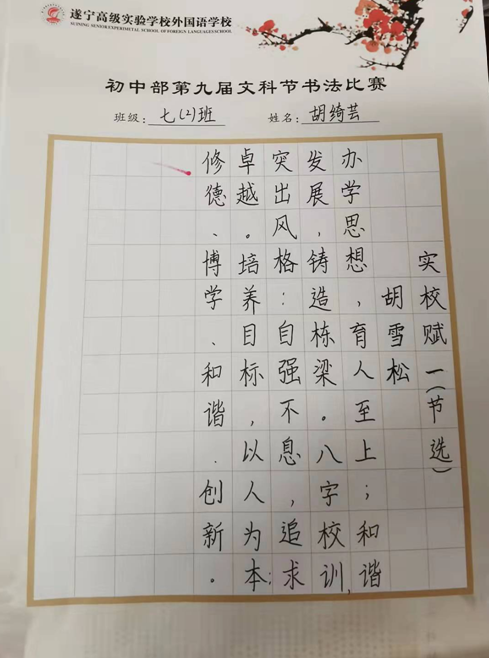 遂宁高级实验学校外国语学校
SUINING SENIOR EXPERIMENTAL SCHOOL OF FOREIGN LANGUAGES SCHOOL
初中部第九届文科节书法比赛
班级：七(2)班 姓名：胡绮芸
实校赋一(节选)
胡雪松
办学思想，育人至上；和谐
发展，铸造栋梁。八字校训，
突出风格：自强不息，追求
卓越。培养目标，以人为本；
修德、博学、和谐．创新。